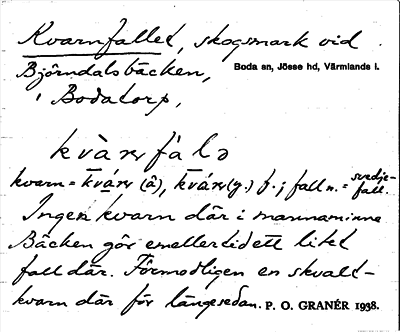 Kvarnfallet, skogsmark vid
Björndalsbäcken,
Boda sn, Jösse hd, Värmlands l.
i Bodatorp,
kvàrnfàlə
kvarn = kvárn (â), kvárn (y.) f.; fall n. = svedje-
fall.
Ingen kvarn där i mannaminne
Bäcken gör emellertid ett litet
fall där. Förmodligen en skvalt-
kvarn där för längesedan. P. O. GRANÉR 1938.